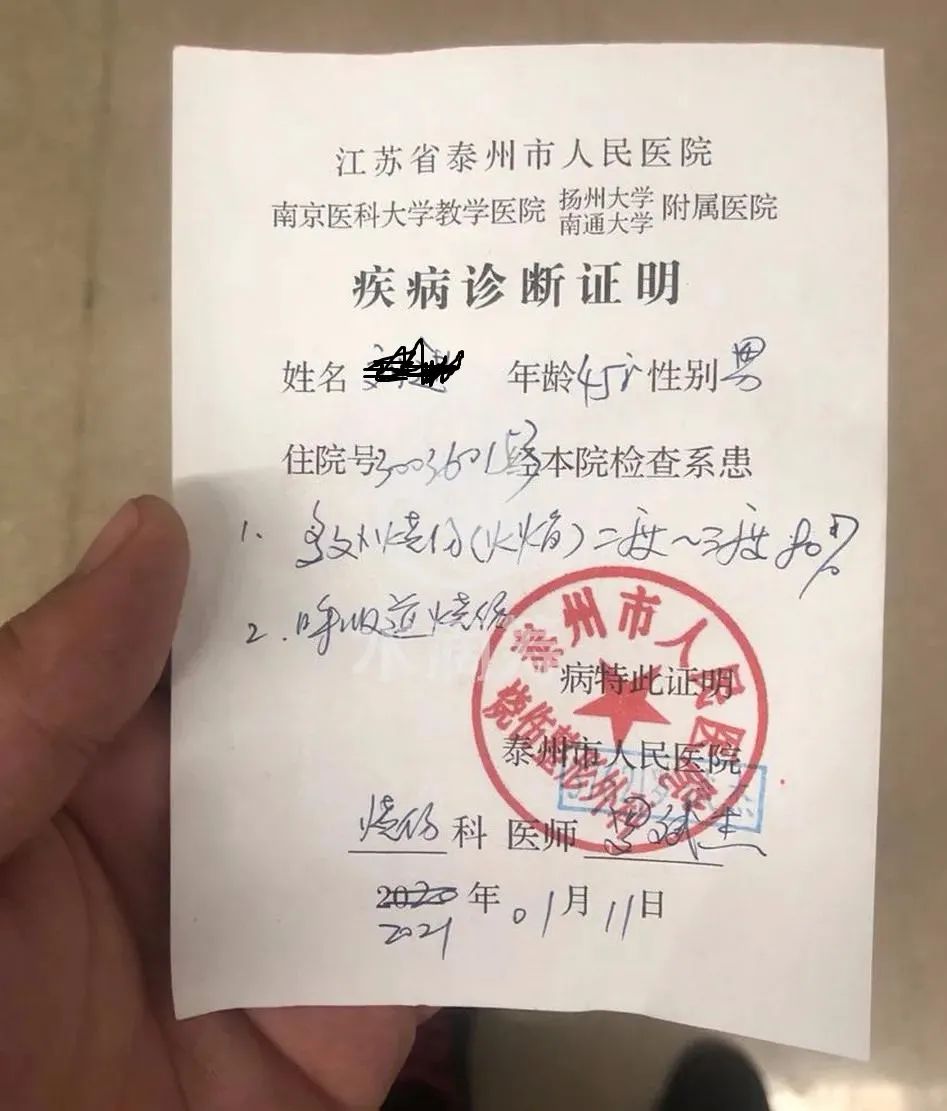 江苏省泰州市人民医院
南京医科大学教学医院 扬州大学 南通大学 附属医院
疾病诊断证明
姓名 年龄45岁性别男
住院号 经本院检查系患
1. 烧伤(火焰)二度~三度80%
2. 呼吸道烧伤
病特此证明
泰州市人民医院
烧伤科 医师
2020年01月11日
2021
泰州市人民医院
烧伤整形外科
水滴筹